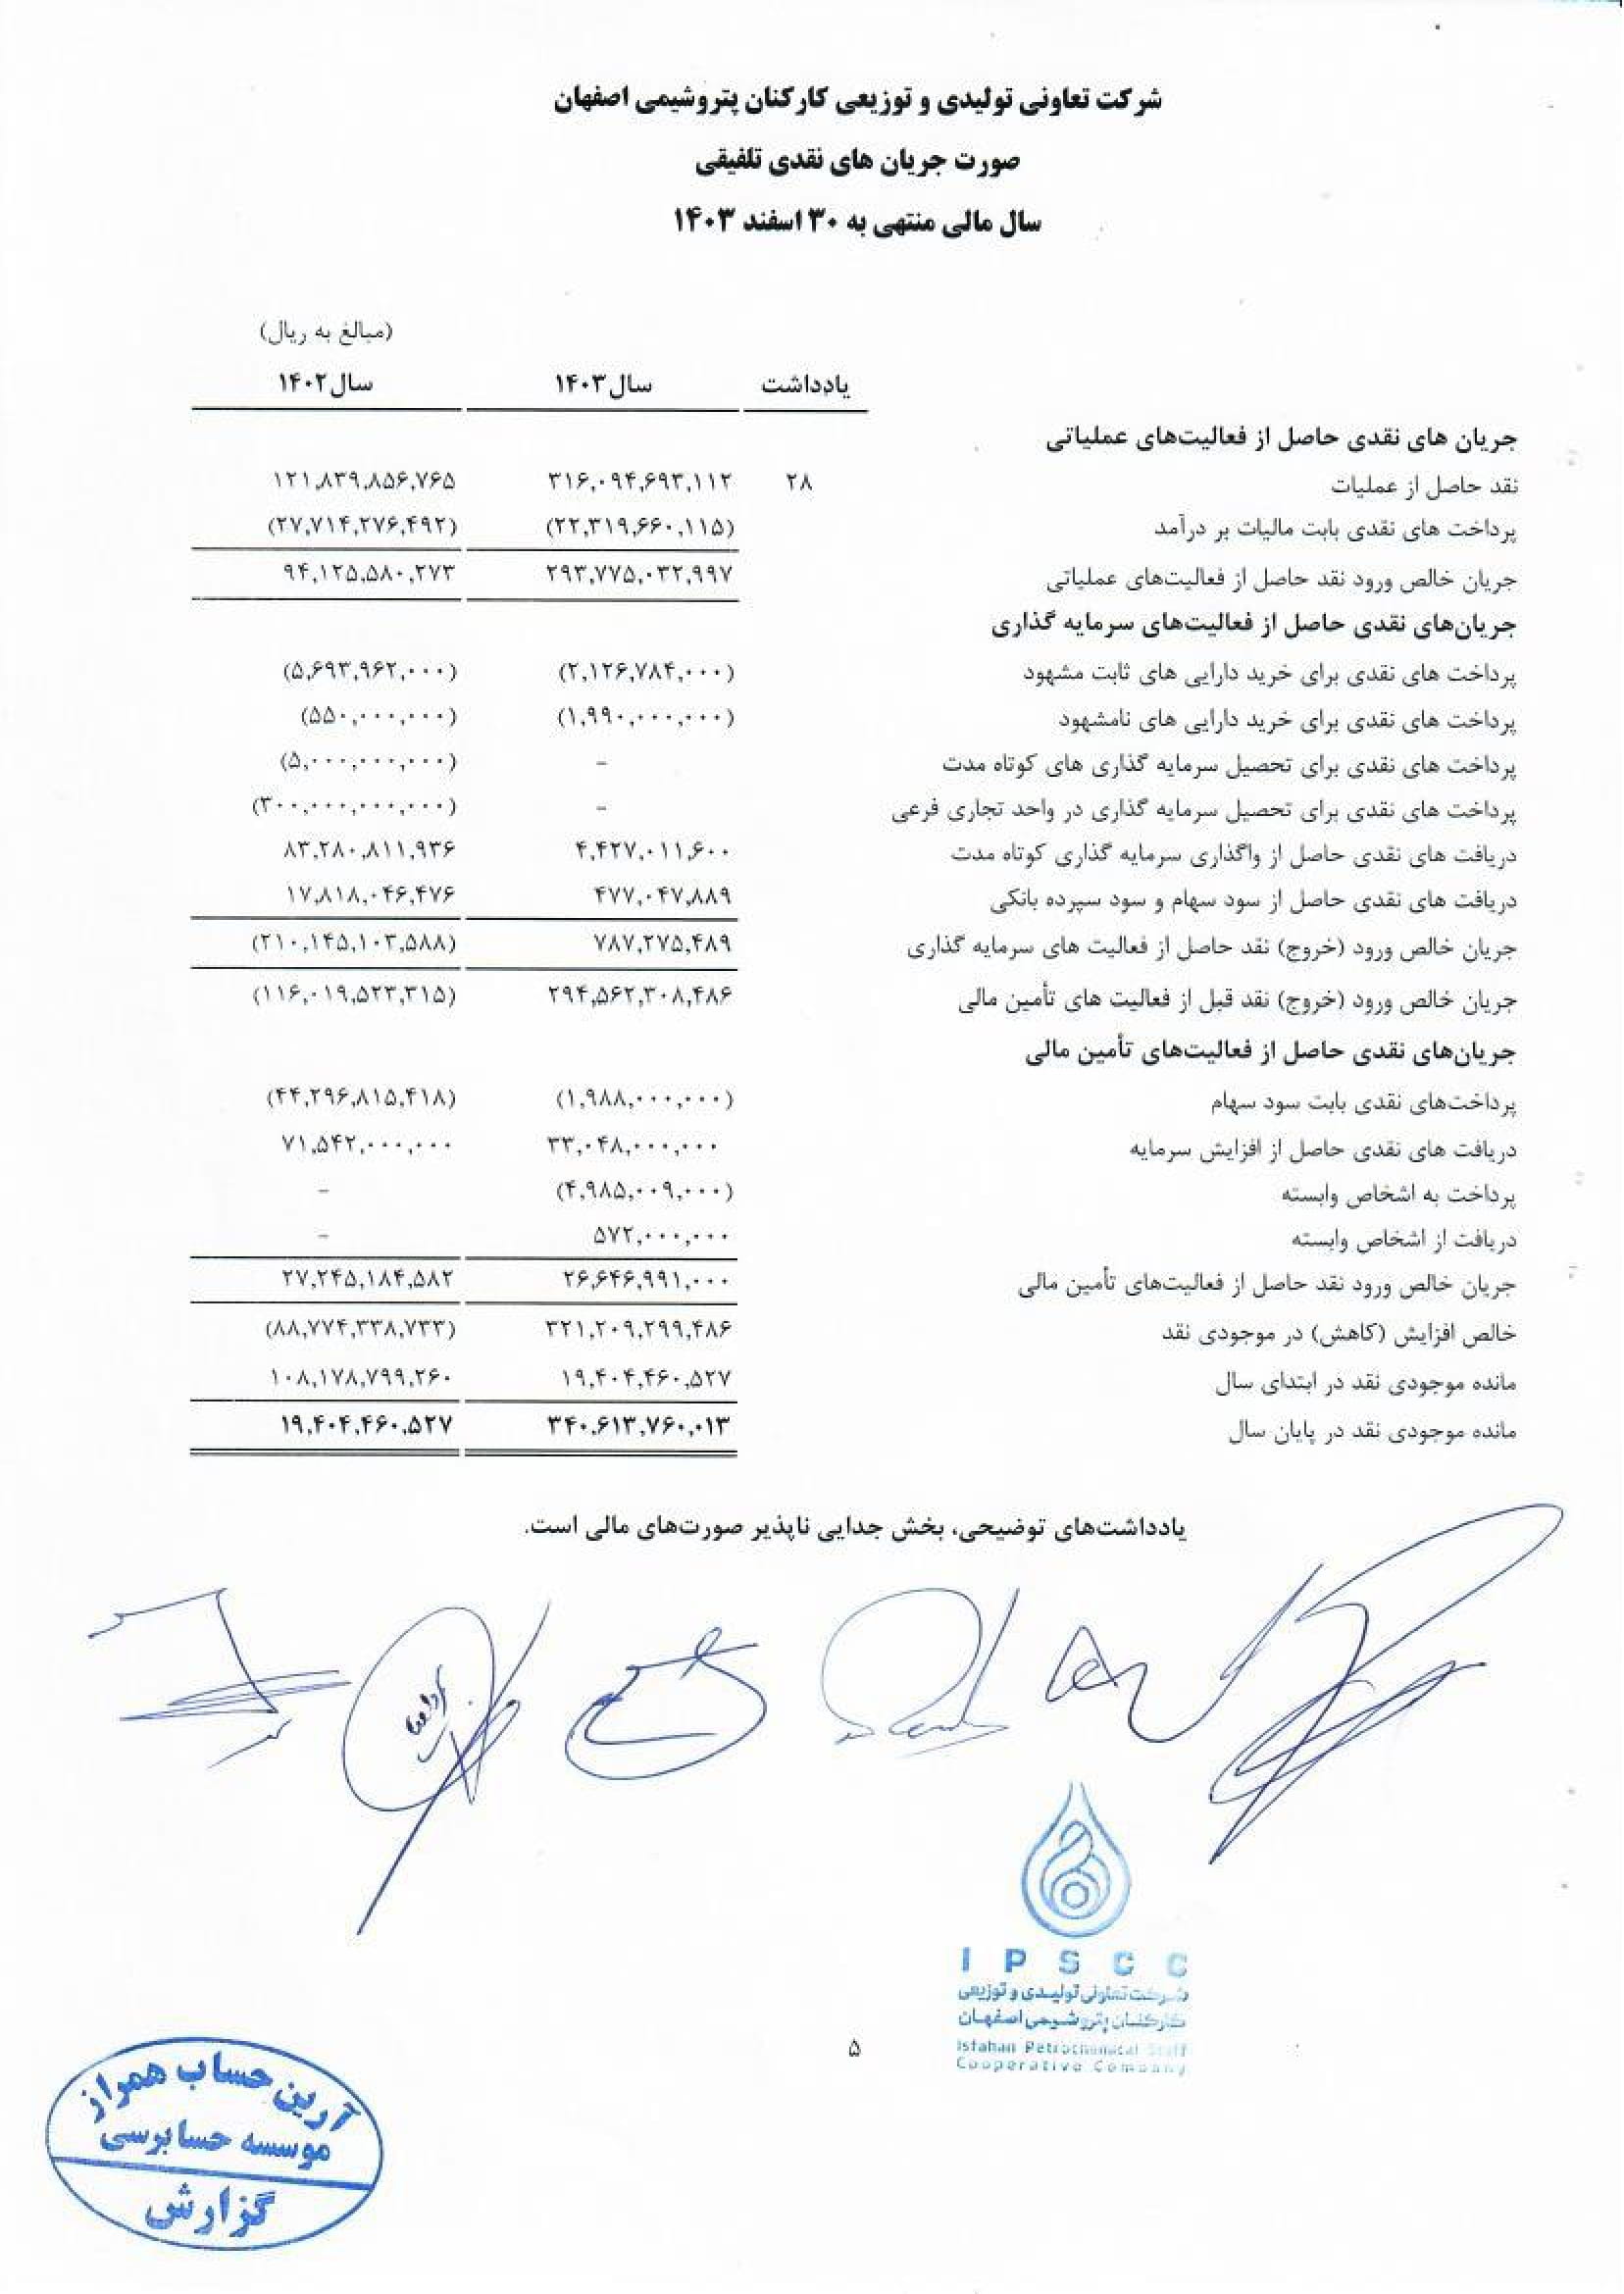 شرکت تعاونی تولیدی و توزیعی کارکنان پتروشیمی اصفهان
صورت جریان های نقدی تلفیقی
سال مالی منتهی به ۳۰ اسفند ۱۴۰۳
(مبالغ به ریال)
یادداشت سال ۱۴۰۳ سال ۱۴۰۲
جریان های نقدی حاصل از فعالیت‌های عملیاتی
نقد حاصل از عملیات ۲۸ ۳۱۶,۰۹۴,۶۹۳,۱۱۲ ۱۲۱,۸۳۹,۸۵۶,۷۶۵
پرداخت های نقدی بابت مالیات بر درآمد (۲۲,۳۱۹,۶۶۰,۱۱۵) (۲۷,۷۱۴,۲۷۶,۴۹۲)
جریان خالص ورود نقد حاصل از فعالیت‌های عملیاتی ۲۹۳,۷۷۵,۰۳۲,۹۹۷ ۹۴,۱۲۵,۵۸۰,۲۷۳
جریان‌های نقدی حاصل از فعالیت‌های سرمایه گذاری
پرداخت های نقدی برای خرید دارایی های ثابت مشهود (۲,۱۲۶,۷۸۴,۰۰۰) (۵,۶۹۳,۹۶۲,۰۰۰)
پرداخت های نقدی برای خرید دارایی های نامشهود (۱,۹۹۰,۰۰۰,۰۰۰) (۵۵۰,۰۰۰,۰۰۰)
پرداخت های نقدی برای تحصیل سرمایه گذاری های کوتاه مدت - (۵,۰۰۰,۰۰۰,۰۰۰)
پرداخت های نقدی برای تحصیل سرمایه گذاری در واحد تجاری فرعی - (۳۰۰,۰۰۰,۰۰۰,۰۰۰)
دریافت های نقدی حاصل از واگذاری سرمایه گذاری کوتاه مدت ۴,۴۲۷,۰۱۱,۶۰۰ ۸۳,۲۸۰,۸۱۱,۹۳۶
دریافت های نقدی حاصل از سود سهام و سود سپرده بانکی ۴۷۷,۰۴۷,۸۸۹ ۱۷,۸۱۸,۰۴۶,۴۷۶
جریان خالص ورود (خروج) نقد حاصل از فعالیت های سرمایه گذاری ۷۸۷,۲۷۵,۴۸۹ (۲۱۰,۱۴۵,۱۰۳,۵۸۸)
جریان خالص ورود (خروج) نقد قبل از فعالیت های تأمین مالی ۲۹۴,۵۶۲,۳۰۸,۴۸۶ (۱۱۶,۰۱۹,۵۲۳,۳۱۵)
جریان‌های نقدی حاصل از فعالیت‌های تأمین مالی
پرداخت‌های نقدی بابت سود سهام (۱,۹۸۸,۰۰۰,۰۰۰) (۴۴,۲۹۶,۸۱۵,۴۱۸)
دریافت های نقدی حاصل از افزایش سرمایه ۳۳,۰۴۸,۰۰۰,۰۰۰ ۷۱,۵۴۲,۰۰۰,۰۰۰
پرداخت به اشخاص وابسته (۴,۹۸۵,۰۰۹,۰۰۰) -
دریافت از اشخاص وابسته ۵۷۲,۰۰۰,۰۰۰ -
جریان خالص ورود نقد حاصل از فعالیت‌های تأمین مالی ۲۶,۶۴۶,۹۹۱,۰۰۰ ۲۷,۲۴۵,۱۸۴,۵۸۲
خالص افزایش (کاهش) در موجودی نقد ۳۲۱,۲۰۹,۲۹۹,۴۸۶ (۸۸,۷۷۴,۳۳۸,۷۳۳)
مانده موجودی نقد در ابتدای سال ۱۹,۴۰۴,۴۶۰,۵۲۷ ۱۰۸,۱۷۸,۷۹۹,۲۶۰
مانده موجودی نقد در پایان سال ۳۴۰,۶۱۳,۷۶۰,۰۱۳ ۱۹,۴۰۴,۴۶۰,۵۲۷
یادداشت‌های توضیحی، بخش جدایی ناپذیر صورت‌های مالی است.
I P S C C
شرکت تعاونی تولیدی و توزیعی
کارکنان پتروشیمی اصفهان
Isfahan Petrochemical Staff
Cooperative Company
۵
آرین حساب همراز
موسسه حسابرسی
گزارش